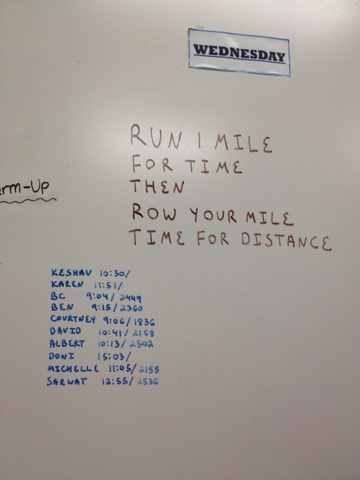 WEDNESDAY
RUN 1 MILE
FOR TIME
THEN
ROW YOUR MILE
TIME FOR DISTANCE
erm-Up
KESHAV 10:30/
KAREN 11:51/
BC 9:04/2449
BEN 9:15/2360
COURTNEY 9:06/1836
DAVID 10:41/2168
ALBERT 10:13/2502
DONI 15:03/
MICHELLE 11:05/2155
SARWAT 12:55/2536